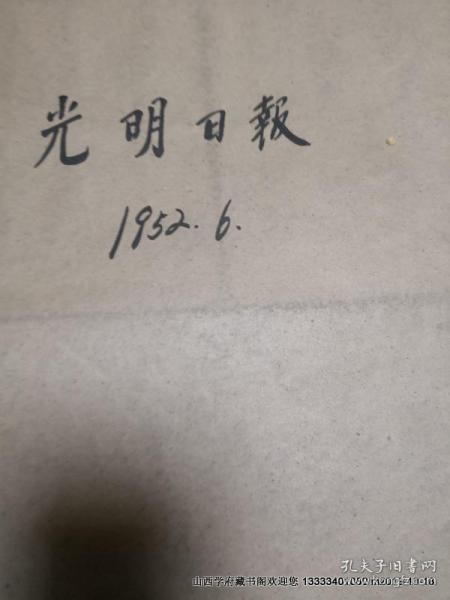 光明日報
1952.6.
孔夫子旧书网
山西学府藏书阁欢迎您